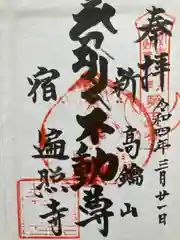 奉拝
令和四年三月廿一日
新
高 山
不動尊
宿
遍照寺